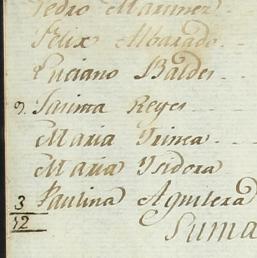 Pedro Martinez
Felix Albarado
Luciano Baldes
9. Sasima Reyes
Maria Trinea
Maria Isidora
3 Paulina Aguilera
12 Suma